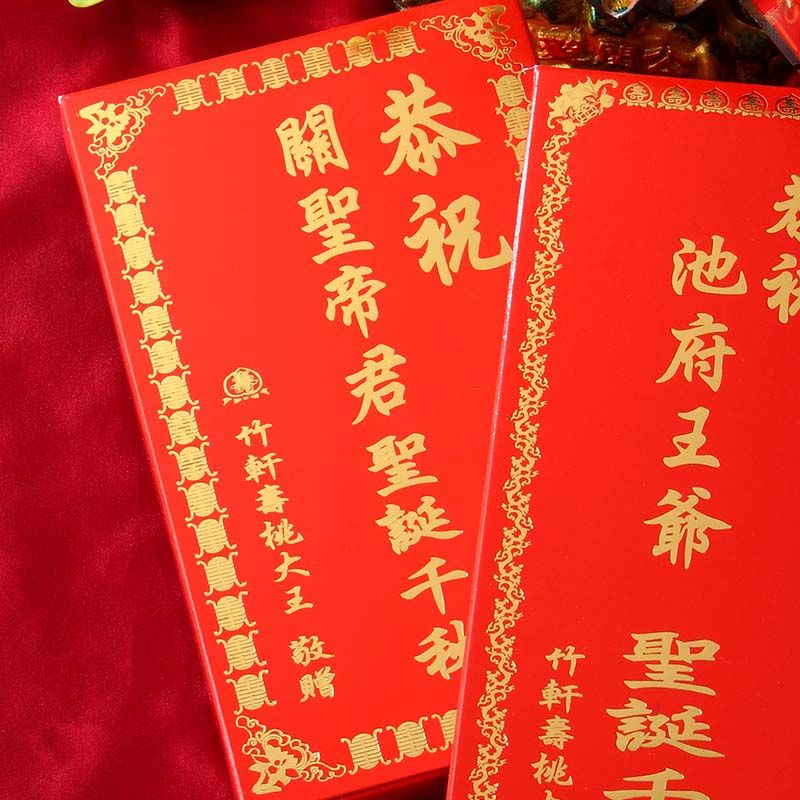 恭祝
關聖帝君聖誕千秋
竹軒壽桃大王 敬贈
恭祝
池府王爺
聖誕千
竹軒壽桃大